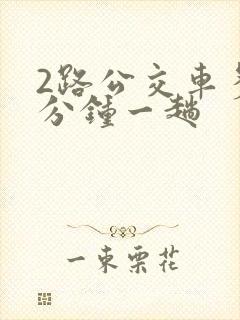 2路公交车
分鐘一趟
一束栗花